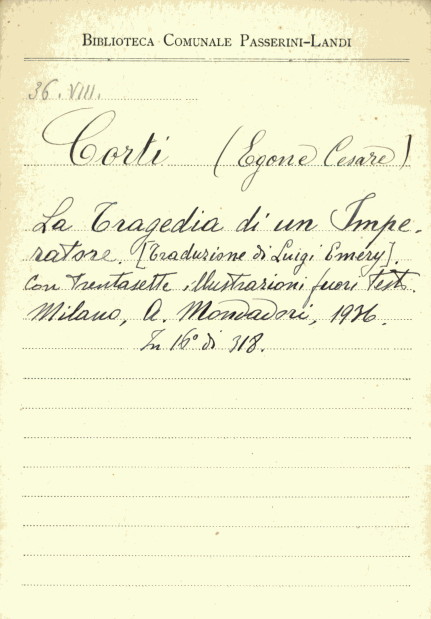 BIBLIOTECA COMUNALE PASSERINI-LANDI
36.VIII.
Corti (Egone Cesare)
La Tragedia di un Impe-
ratore. [Traduzione di Luigi Emery].
Con trentasette illustrazioni fuori testo.
Milano, A. Mondadori, 1936.
In 16° di 318.